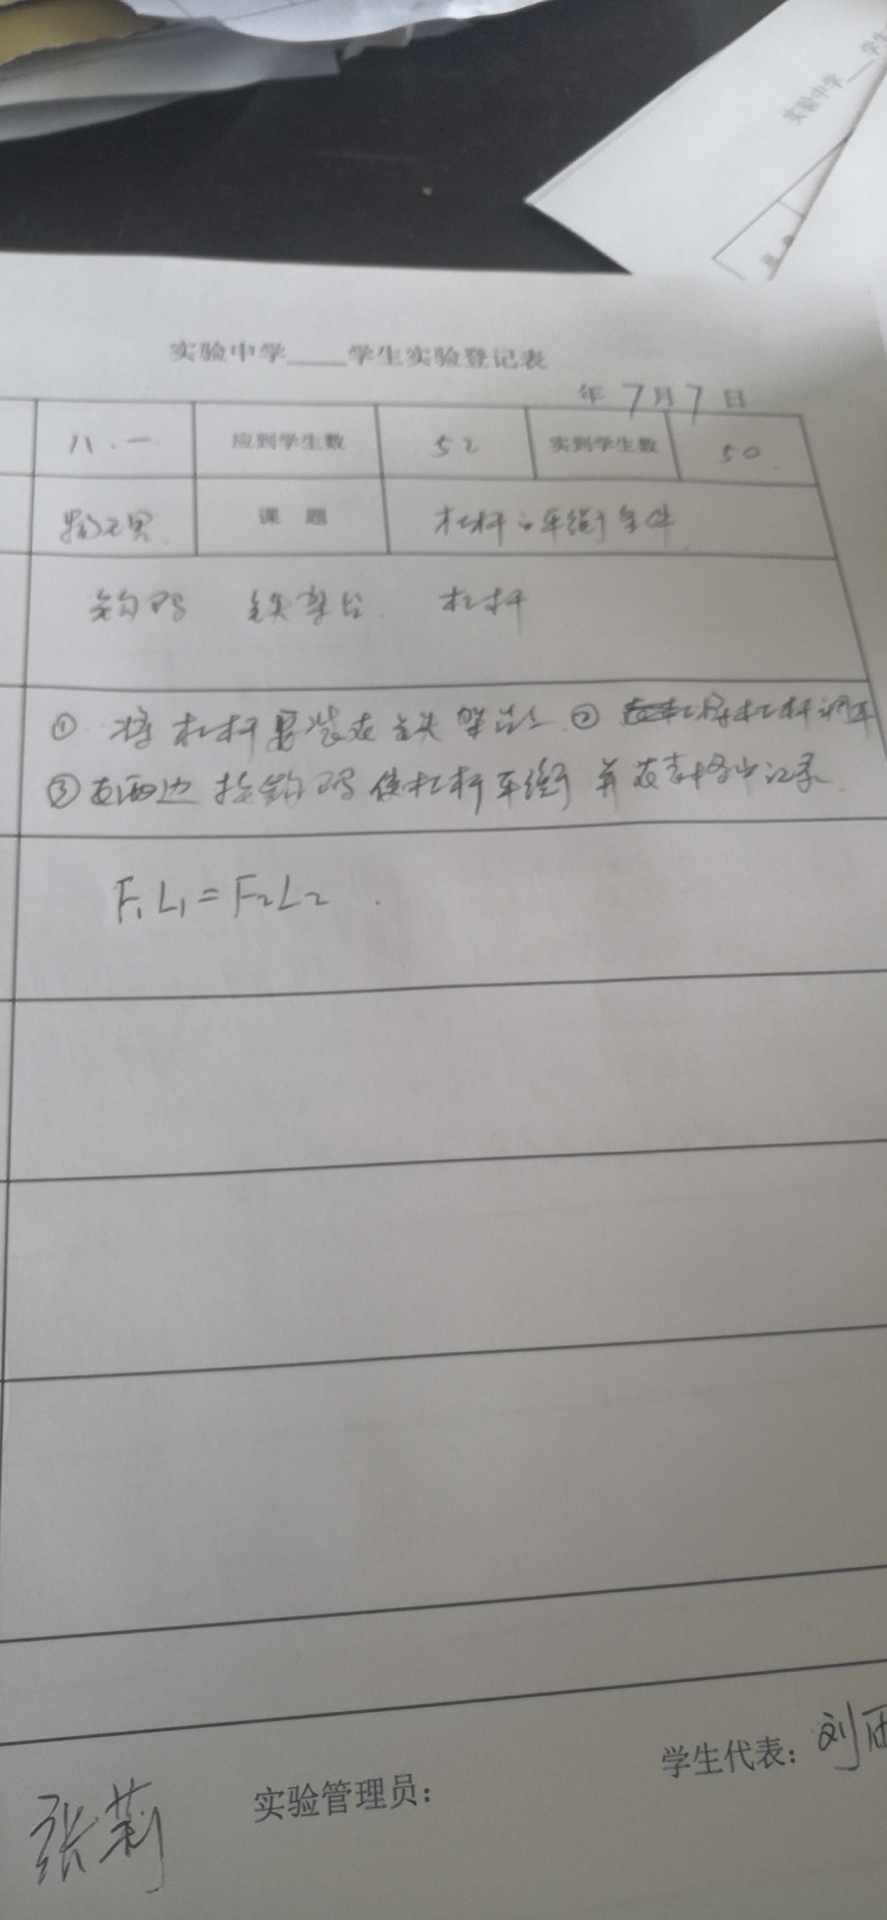 实验中学
学生
实验中学____学生实验登记表
年7月7日
八.一 应到学生数 52 实到学生数 50
物理 课 题 杠杆的平衡条件
钩码 铁架台 杠杆
①将杠杆安装在铁架台上②将杠杆调平
③在两边挂钩码使杠杆平衡并在表格中记录.
F₁L₁=F₂L₂.
学生代表：刘雨
张莉 实验管理员：